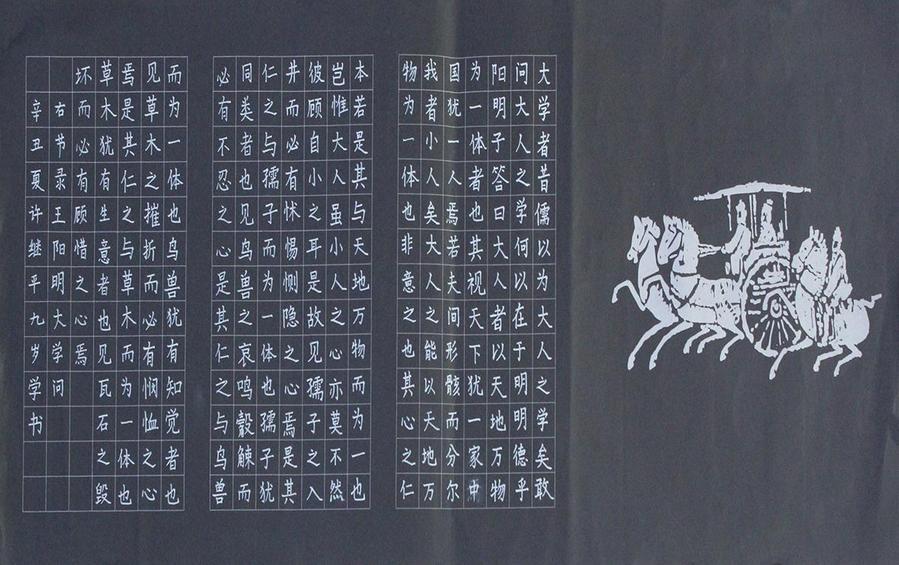 大学者昔儒以为大人之学矣敢
问大人之学何以在于明明德乎
阳明子答曰大人者以天地万物
为一体者也其视天下犹一家中
国犹一人焉若夫间形骸而分尔
我者小人矣大人之能以天地万
物为一体也非意之也其心之仁
本若是其与天地万物而为一也
岂惟大人虽小人之心亦莫不然
彼顾自小之耳是故见孺子之入
井而必有怵惕恻隐之心焉是其
仁之与孺子而为一体也孺子犹
同类者也见鸟兽之哀鸣觳觫而
必有不忍之心是其仁之与鸟兽
而为一体也鸟兽犹有知觉者也
见草木之摧折而必有悯恤之心
焉是其仁之与草木而为一体也
草木犹有生意者也见瓦石之毁
坏而必有顾惜之心焉
右节录王阳明大学问
辛丑夏许继平九岁学书